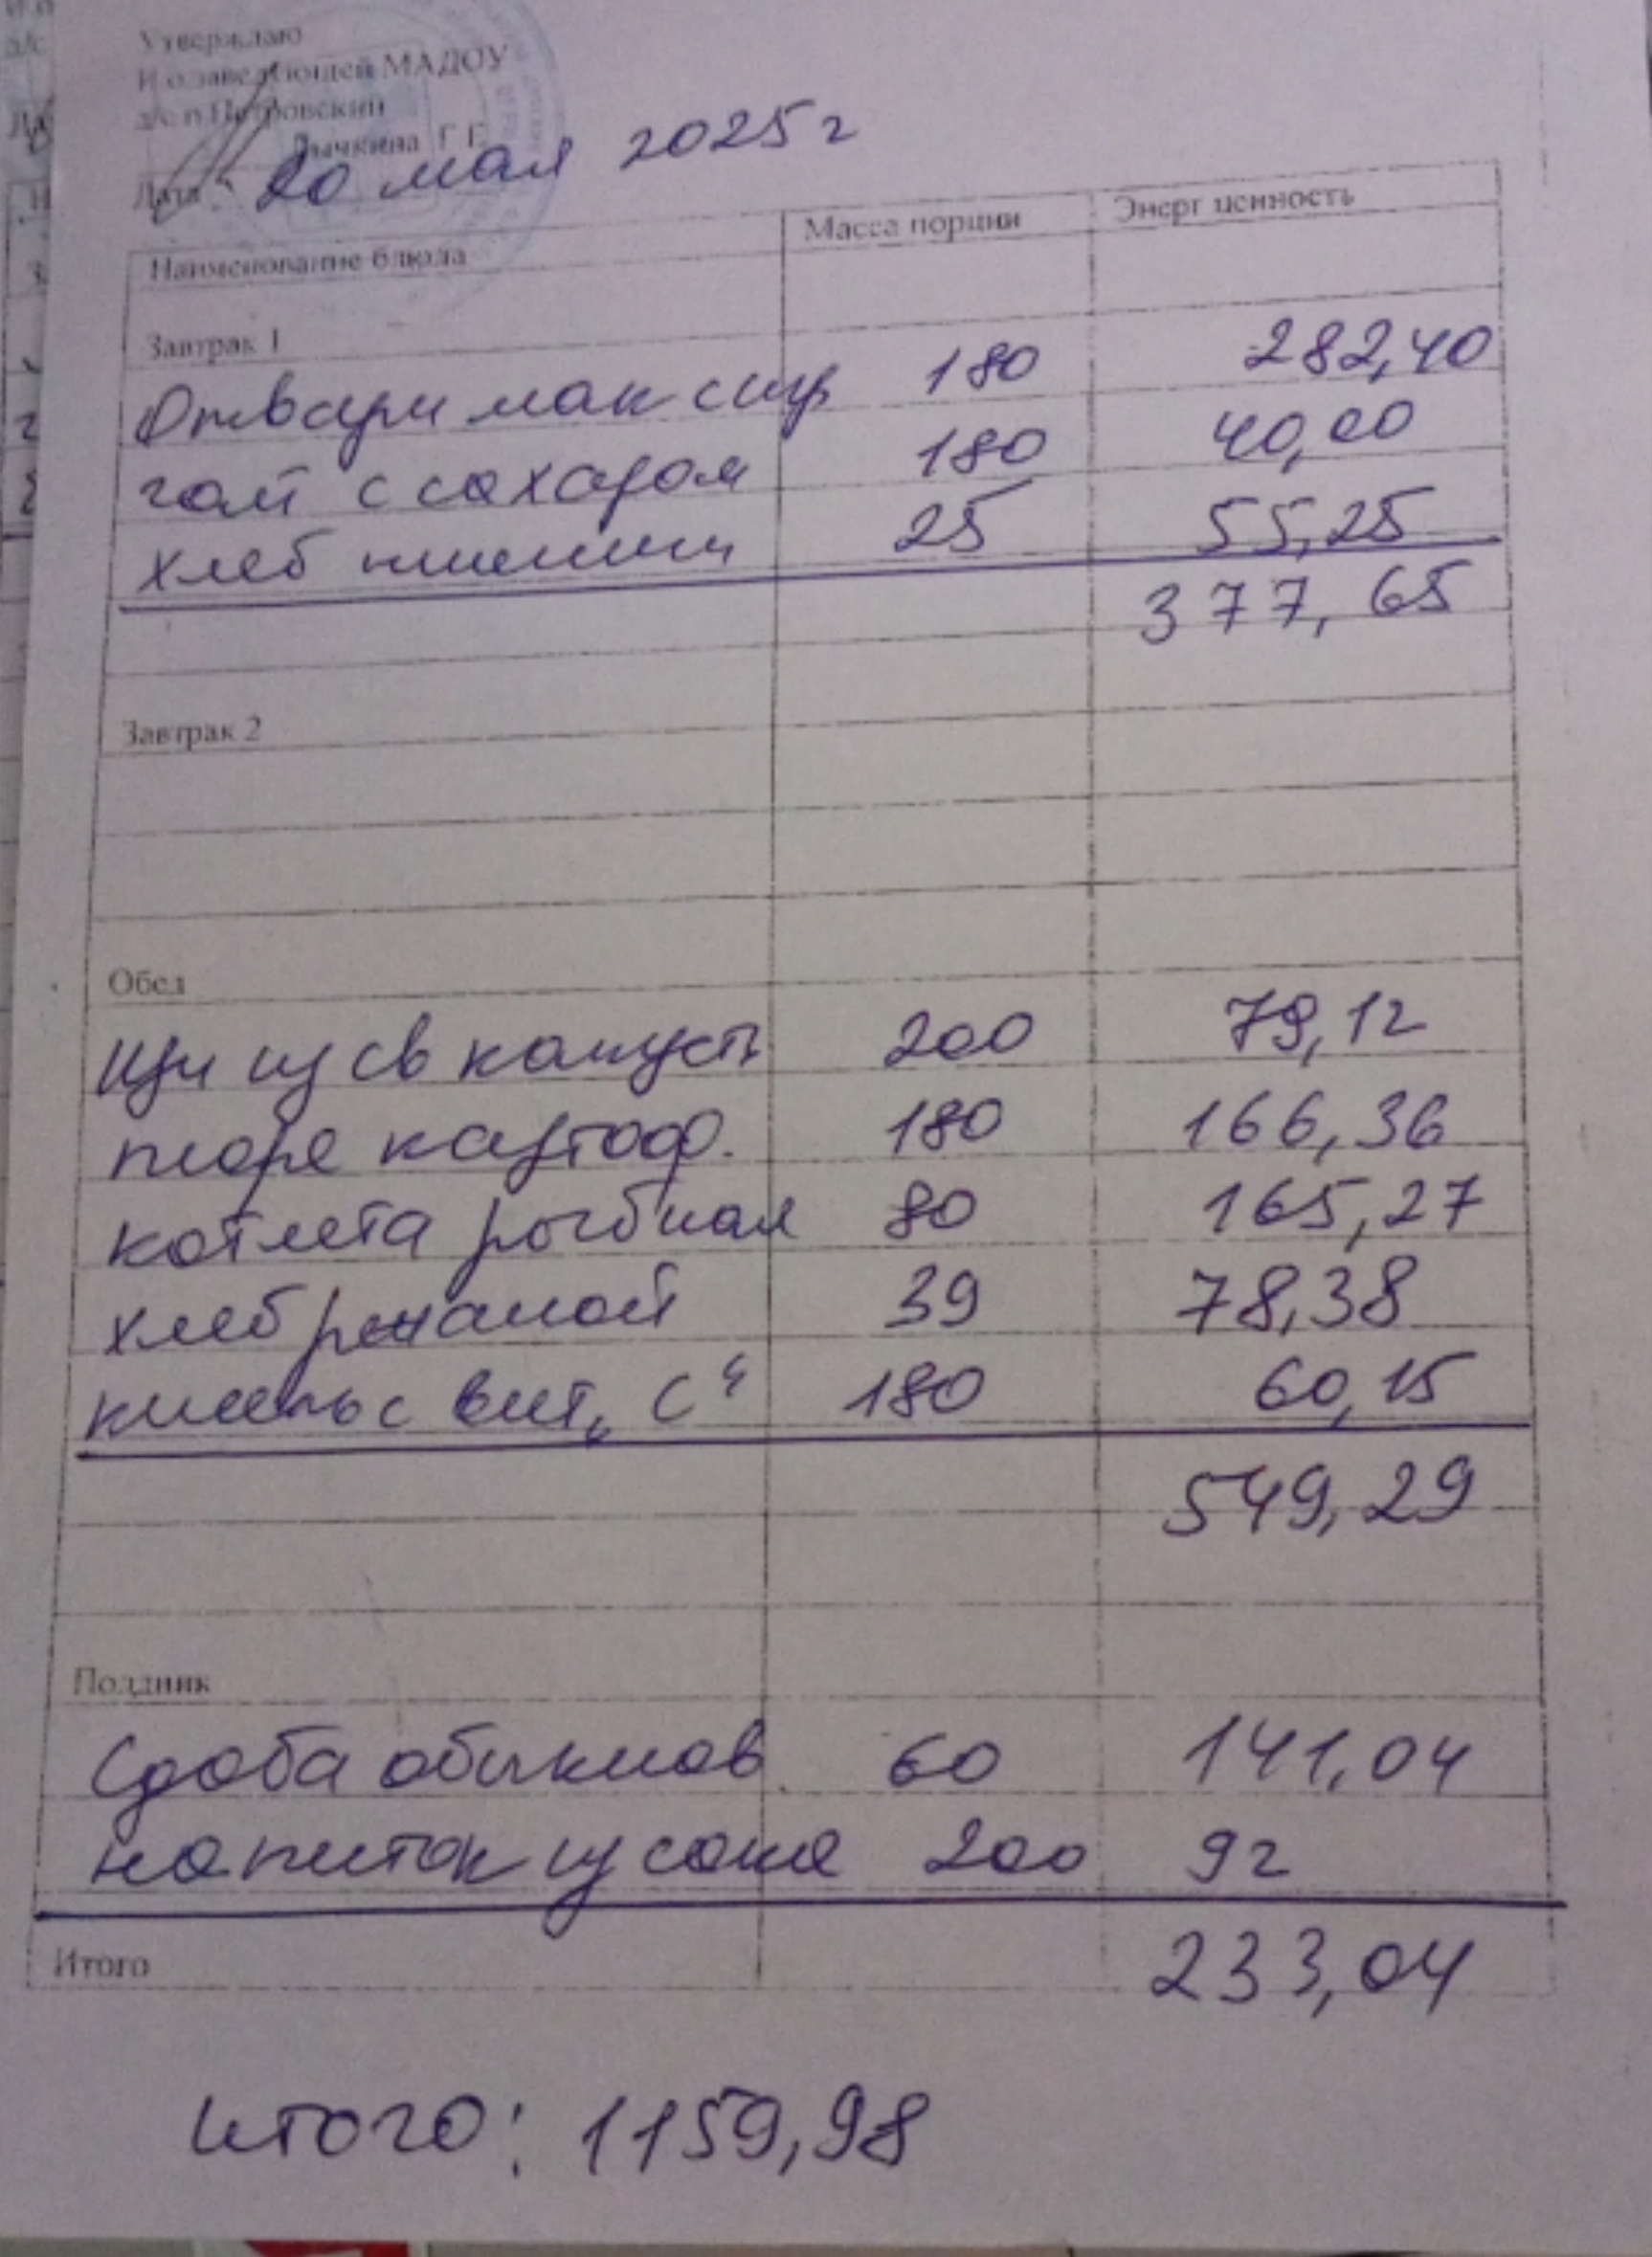 Утверждаю
И о заведующей МАДОУ
д/с п Петровский
Лычкина Г Г
Дата 20 мая 2025 г
Наименование блюда Масса порции Энерг ценность
Завтрак 1
Отварн мак сыр 180 282,40
чай с сахаром 180 40,00
хлеб пшениц 25 55,25
377,65
Завтрак 2
Обед
Щи из св капуст 200 79,12
пюре картоф. 180 166,36
котлета рыбная 80 165,27
хлеб ржаной 39 78,38
кисель с вит „С" 180 60,15
549,29
Полдник
Сдоба обыкнов. 60 141,04
напиток из сока 200 92
Итого 233,04
итого: 1159,98